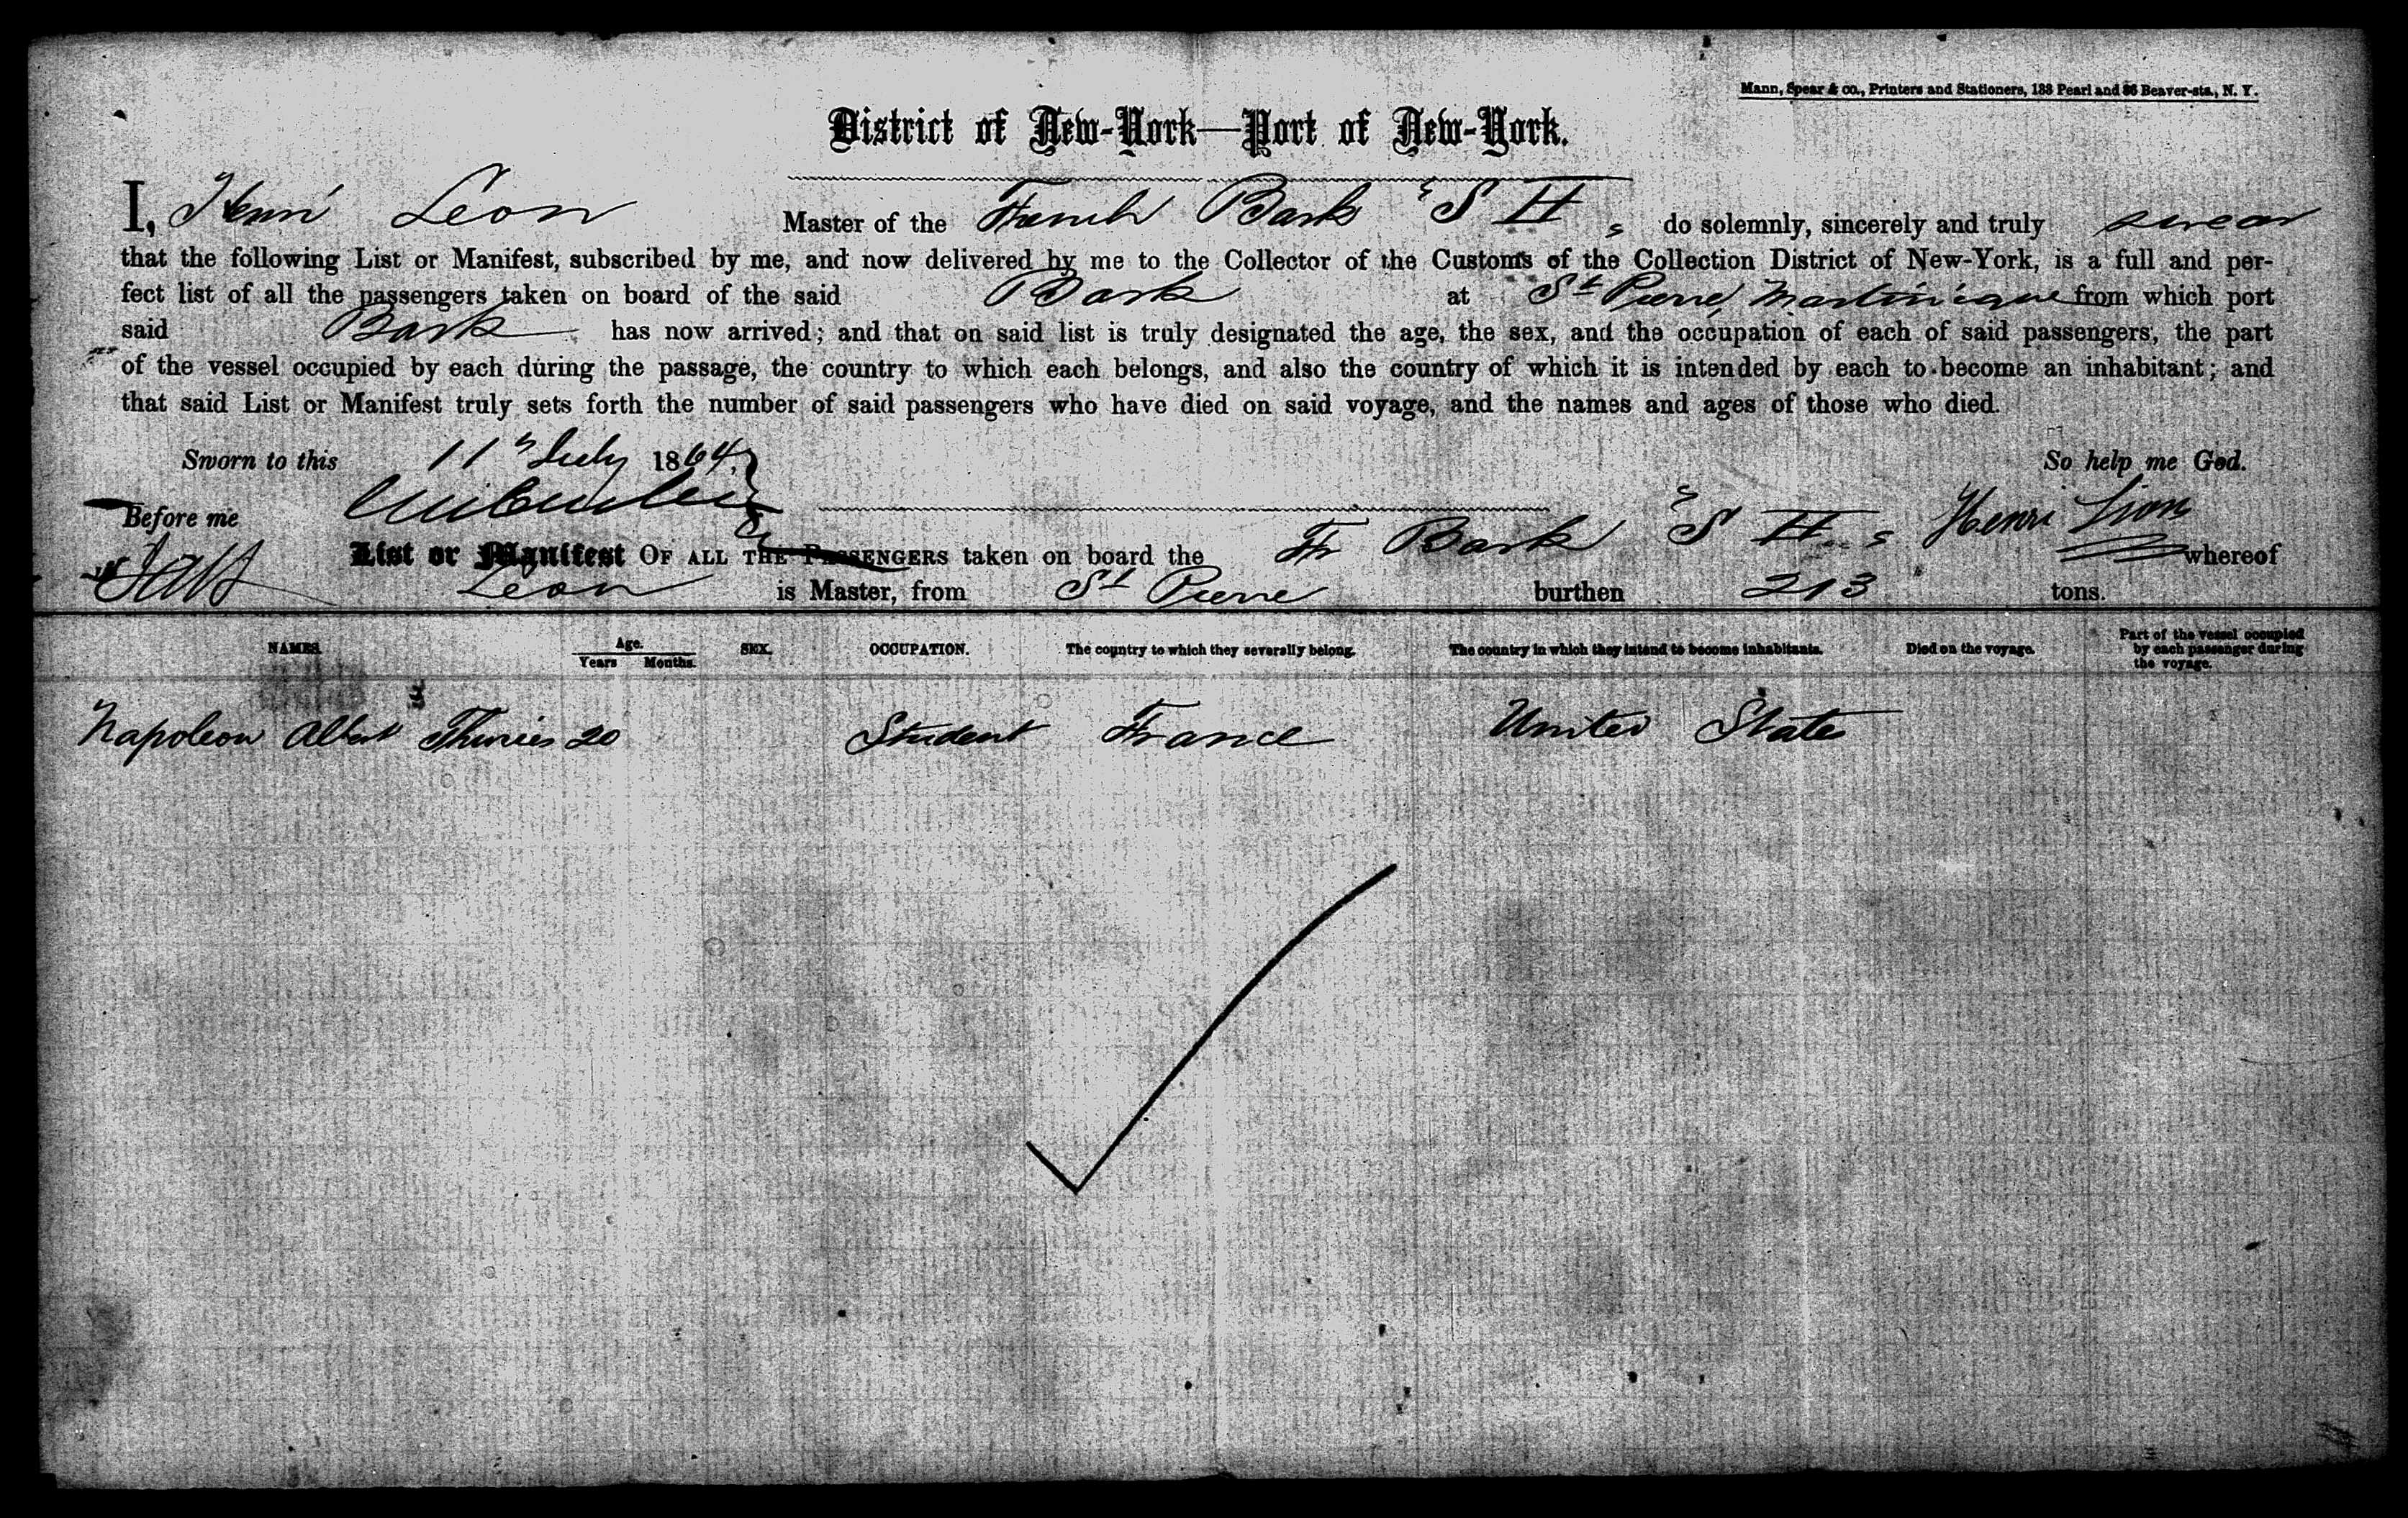 Mann, Spear & co., Printers and Stationers, 133 Pearl and 86 Beaver-sts., N. Y.
District of New-York—Port of New-York.
I, Henri Leon Master of the French Bark "S H" do solemnly, sincerely and truly swear
that the following List or Manifest, subscribed by me, and now delivered by me to the Collector of the Customs of the Collection District of New-York, is a full and per-
fect list of all the passengers taken on board of the said Bark at St Pierre, Martinique from which port
said Bark has now arrived; and that on said list is truly designated the age, the sex, and the occupation of each of said passengers, the part
of the vessel occupied by each during the passage, the country to which each belongs, and also the country of which it is intended by each to become an inhabitant; and
that said List or Manifest truly sets forth the number of said passengers who have died on said voyage, and the names and ages of those who died.
Sworn to this 11 July 1864. So help me God.
Before me Henri Lion
List or Manifest OF ALL THE PASSENGERS taken on board the Fr Bark "S H" whereof
Leon is Master, from St Pierre burthen 213 tons.
NAMES. Age. Years Months. SEX. OCCUPATION. The country to which they severally belong. The country in which they intend to become inhabitants. Died on the voyage. Part of the vessel occupied by each passenger during the voyage.
Napoleon Albert 20 Student France United States